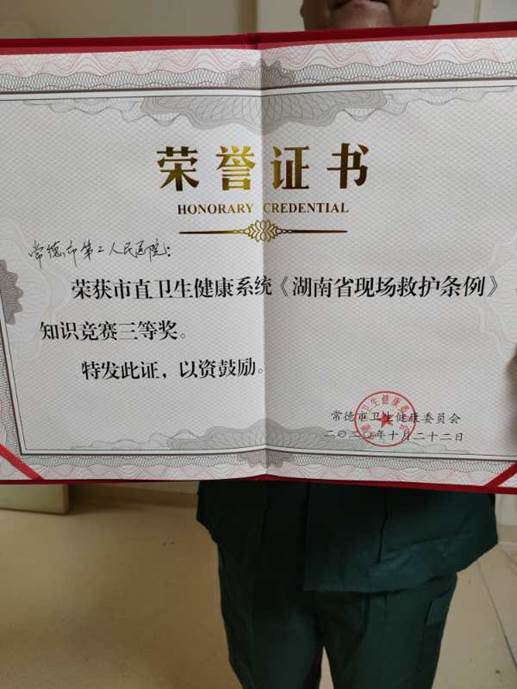 荣誉证书
HONORARY CREDENTIAL
常德市第二人民医院:
荣获市直卫生健康系统《湖南省现场救护条例》
知识竞赛三等奖。
特发此证,以资鼓励。
常德市卫生健康委员会
年十月二十二日